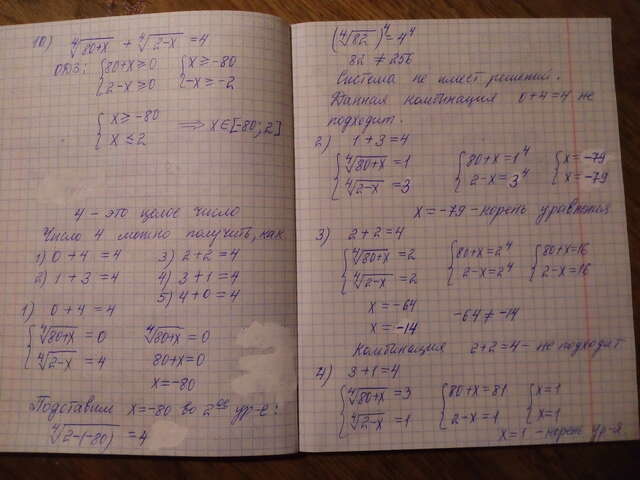 10) ∜(80+x) + ∜(2-x) = 4
ОДЗ: { 80+x ≥ 0 { x ≥ -80
2-x ≥ 0 -x ≥ -2
{ x ≥ -80
x ≤ 2 ⟹ x ∈ [-80; 2]
4 - это целое число
Число 4 можно получить, как
1) 0 + 4 = 4 3) 2+2 = 4
2) 1 + 3 = 4 4) 3+1 = 4
5) 4+0 = 4
1) 0 + 4 = 4
{ ∜(80+x) = 0 ∜(80+x) = 0
∜(2-x) = 4 80+x=0
x=-80
Подставим x=-80 во 2ое ур-е:
∜(2-(-80)) = 4
(∜82)⁴ = 4⁴
82 ≠ 256
Система не имеет решений.
Данная комбинация 0+4=4 не
подходит.
2) 1+3=4
{ ∜(80+x) = 1 { 80+x=1⁴ { x=-79
∜(2-x) = 3 2-x=3⁴ x=-79
x = -79 - корень уравнения
3) 2+2=4
{ ∜(80+x) = 2 { 80+x=2⁴ { 80+x=16
∜(2-x) = 2 2-x=2⁴ 2-x=16
x = -64
x = -14 -64 ≠ -14
Комбинация 2+2=4 - не подходит
4) 3+1=4
{ ∜(80+x) = 3 { 80+x=81 { x=1
∜(2-x) = 1 2-x=1 x=1
x=1 - корень ур-я